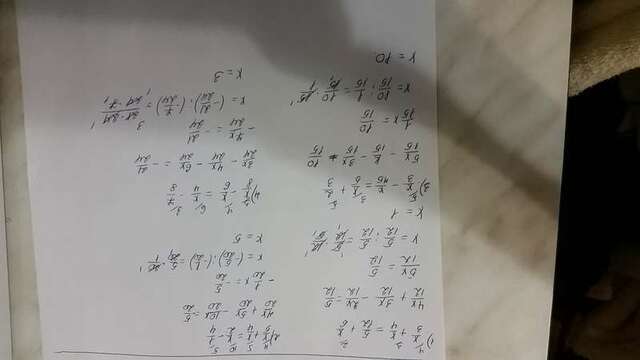 1) x/3 + x/4 = 5/12 + x/6
4x/12 + 3x/12 - 2x/12 = 5/12
5x/12 = 5/12
x = 5/12 : 5/12 = 5/12 · 12/5
x = 1
3) x/3 - x/15 = x/5 + 2/3
5x/15 - x/15 - 3x/15 = 10/15
1/15 x = 10/15
x = 10/15 : 1/15 = 10/15 · 15/1
x = 10
2) x/5 + x/4 = x/2 - 1/4
4x/20 + 5x/20 - 10x/20 = -5/20
-1/20 x = -5/20
x = (-5/20) : (-1/20) = 5/20 · 20/1
x = 5
4) x/8 - x/6 = x/4 - 7/8
3x/24 - 4x/24 - 6x/24 = -21/24
-7x/24 = -21/24
x = (-21/24) : (-7/24) = 21 · 24/24 · 7
x = 3